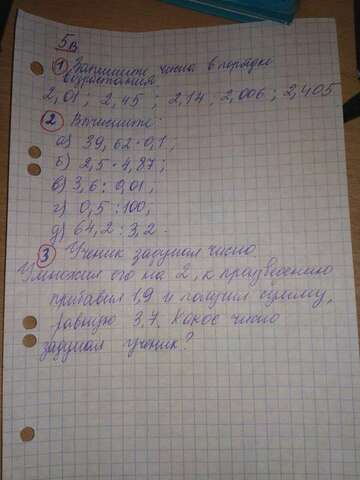 5в
① Запишите числа в порядке
возрастания
2,01; 2,45; 2,14, 2,006; 2,405
② Вычислите:
а) 39,62·0,1;
б) 2,5·4,87;
в) 3,6:0,01;
г) 0,5:100,
д) 64,2:3,2.
③ Ученик задумал число.
Умножил его на 2, к произведению
прибавил 1,9 и получил сумму,
равную 3,7. Какое число
задумал ученик?